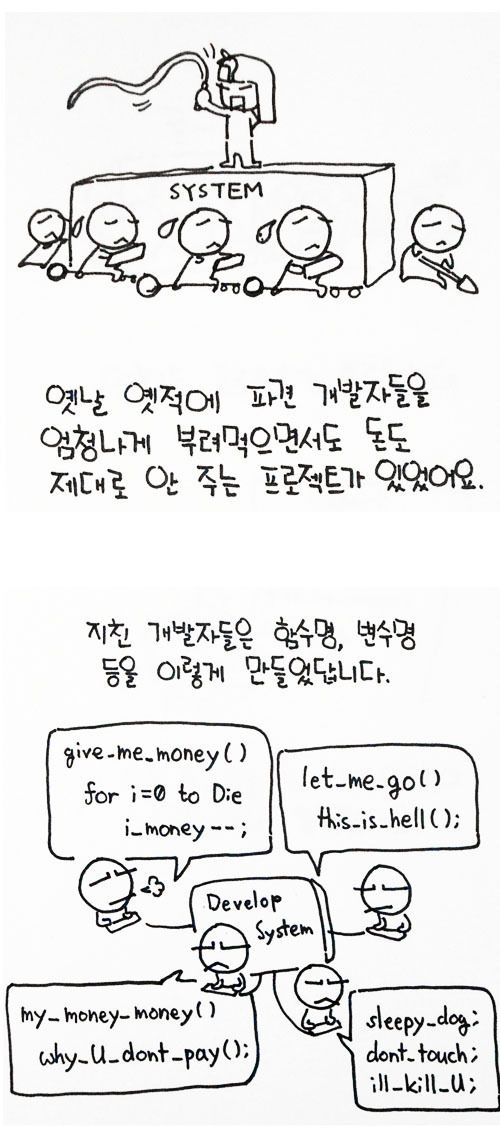 SYSTEM
옛날 옛적에 파견 개발자들을
엄청나게 부려먹으면서도 돈도
제대로 안 주는 프로젝트가 있었어요.
지친 개발자들은 함수명, 변수명
등을 이렇게 만들었답니다.
give_me_money()
for i=0 to Die
i_money--;
let_me_go()
this_is_hell();
Develop
System
my_money_money()
why_U_dont_pay();
sleepy_dog;
dont_touch;
ill_kill_U;